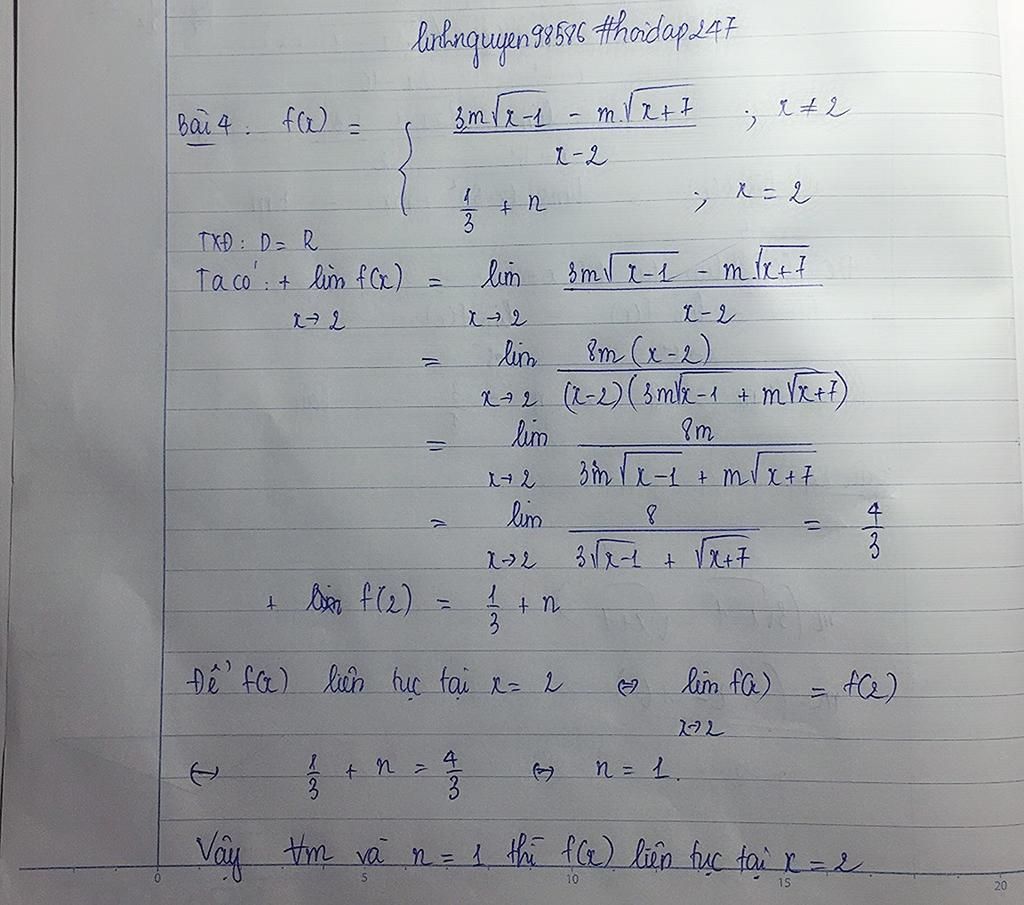 linhnguyen98586 #hoidap247
Bài 4 : f(x) = { (3m√(x-1) - m√(x+7))/(x-2) ; x ≠ 2
1/3 + n ; x = 2
TXĐ : D = R
Ta có : + lim x→2 f(x) = lim x→2 (3m√(x-1) - m√(x+7))/(x-2)
= lim x→2 8m(x-2)/((x-2)(3m√x-1 + m√x+7))
= lim x→2 8m/(3m√(x-1) + m√(x+7))
= lim x→2 8/(3√x-1 + √x+7) = 4/3
+ f(2) = 1/3 + n
Để f(x) liên tục tại x = 2 ⇔ lim x→2 f(x) = f(2)
↔ 1/3 + n = 4/3 ⇔ n = 1.
Vậy ∀m và n = 1 thì f(x) liên tục tại x = 2
0 5 10 15 20